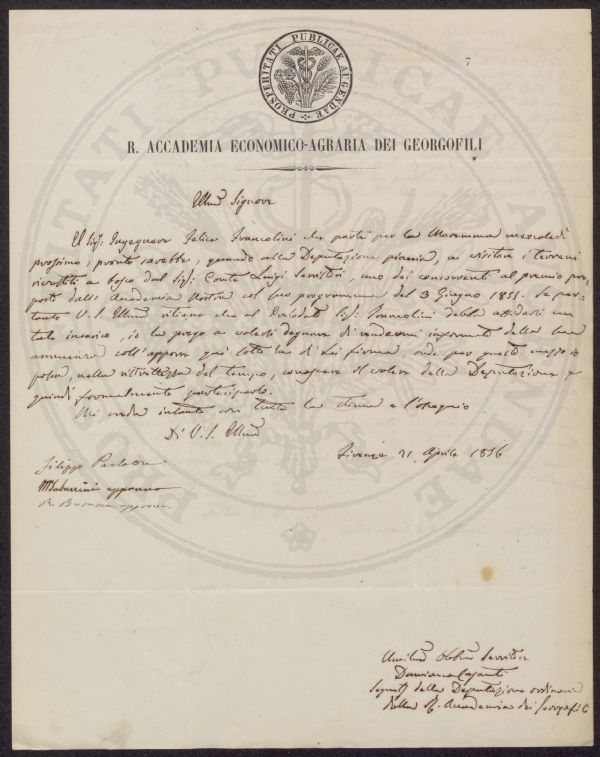 PROSPERITATI PUBLICAE AUGENDAE
7
R. ACCADEMIA ECONOMICO-AGRARIA DEI GEORGOFILI
Illmo Signore
Il Sigr. Ingegnere Felice Francolini che parte per la Maremma mercoledì
prossimo, pronto sarebbe, quando alla Deputazione piaccia, a visitar i terreni
rivestiti a bosco dal Sigr. Conte Luigi Serristori, uno dei concorrenti al premio pro-
posto dalla Accademia Nostra col suo programma del 3 Giugno 1851. Se per-
tanto V. S. Illma ritiene che al Sigr. Francolini debba affidarsi un
tale incarico, io la prego a volersi degnare di rendermi informato della sua
annuenza coll'apporre quì sotto la di Lei firma, onde per questo mezzo io
possa, nella ristrettezza del tempo, conoscere il volere della Deputazione, e
quindi formalmente parteciparlo.
Mi creda intanto con tutta la stima e l'ossequio
Di V. S. Illma
Firenze 21 Aprile 1856
Filippo Parlatore
MTabarrini approvo
R. Busacca approva
Umilmo Obbmo Servitore
Damiano Casanti
Segreto della Deputazione ordinaria
della R. Accademia dei Georgofili